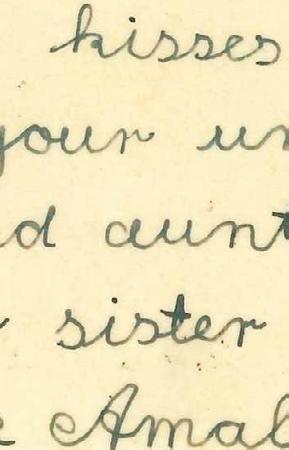 kisses
your un
d aunt
sister
Amal